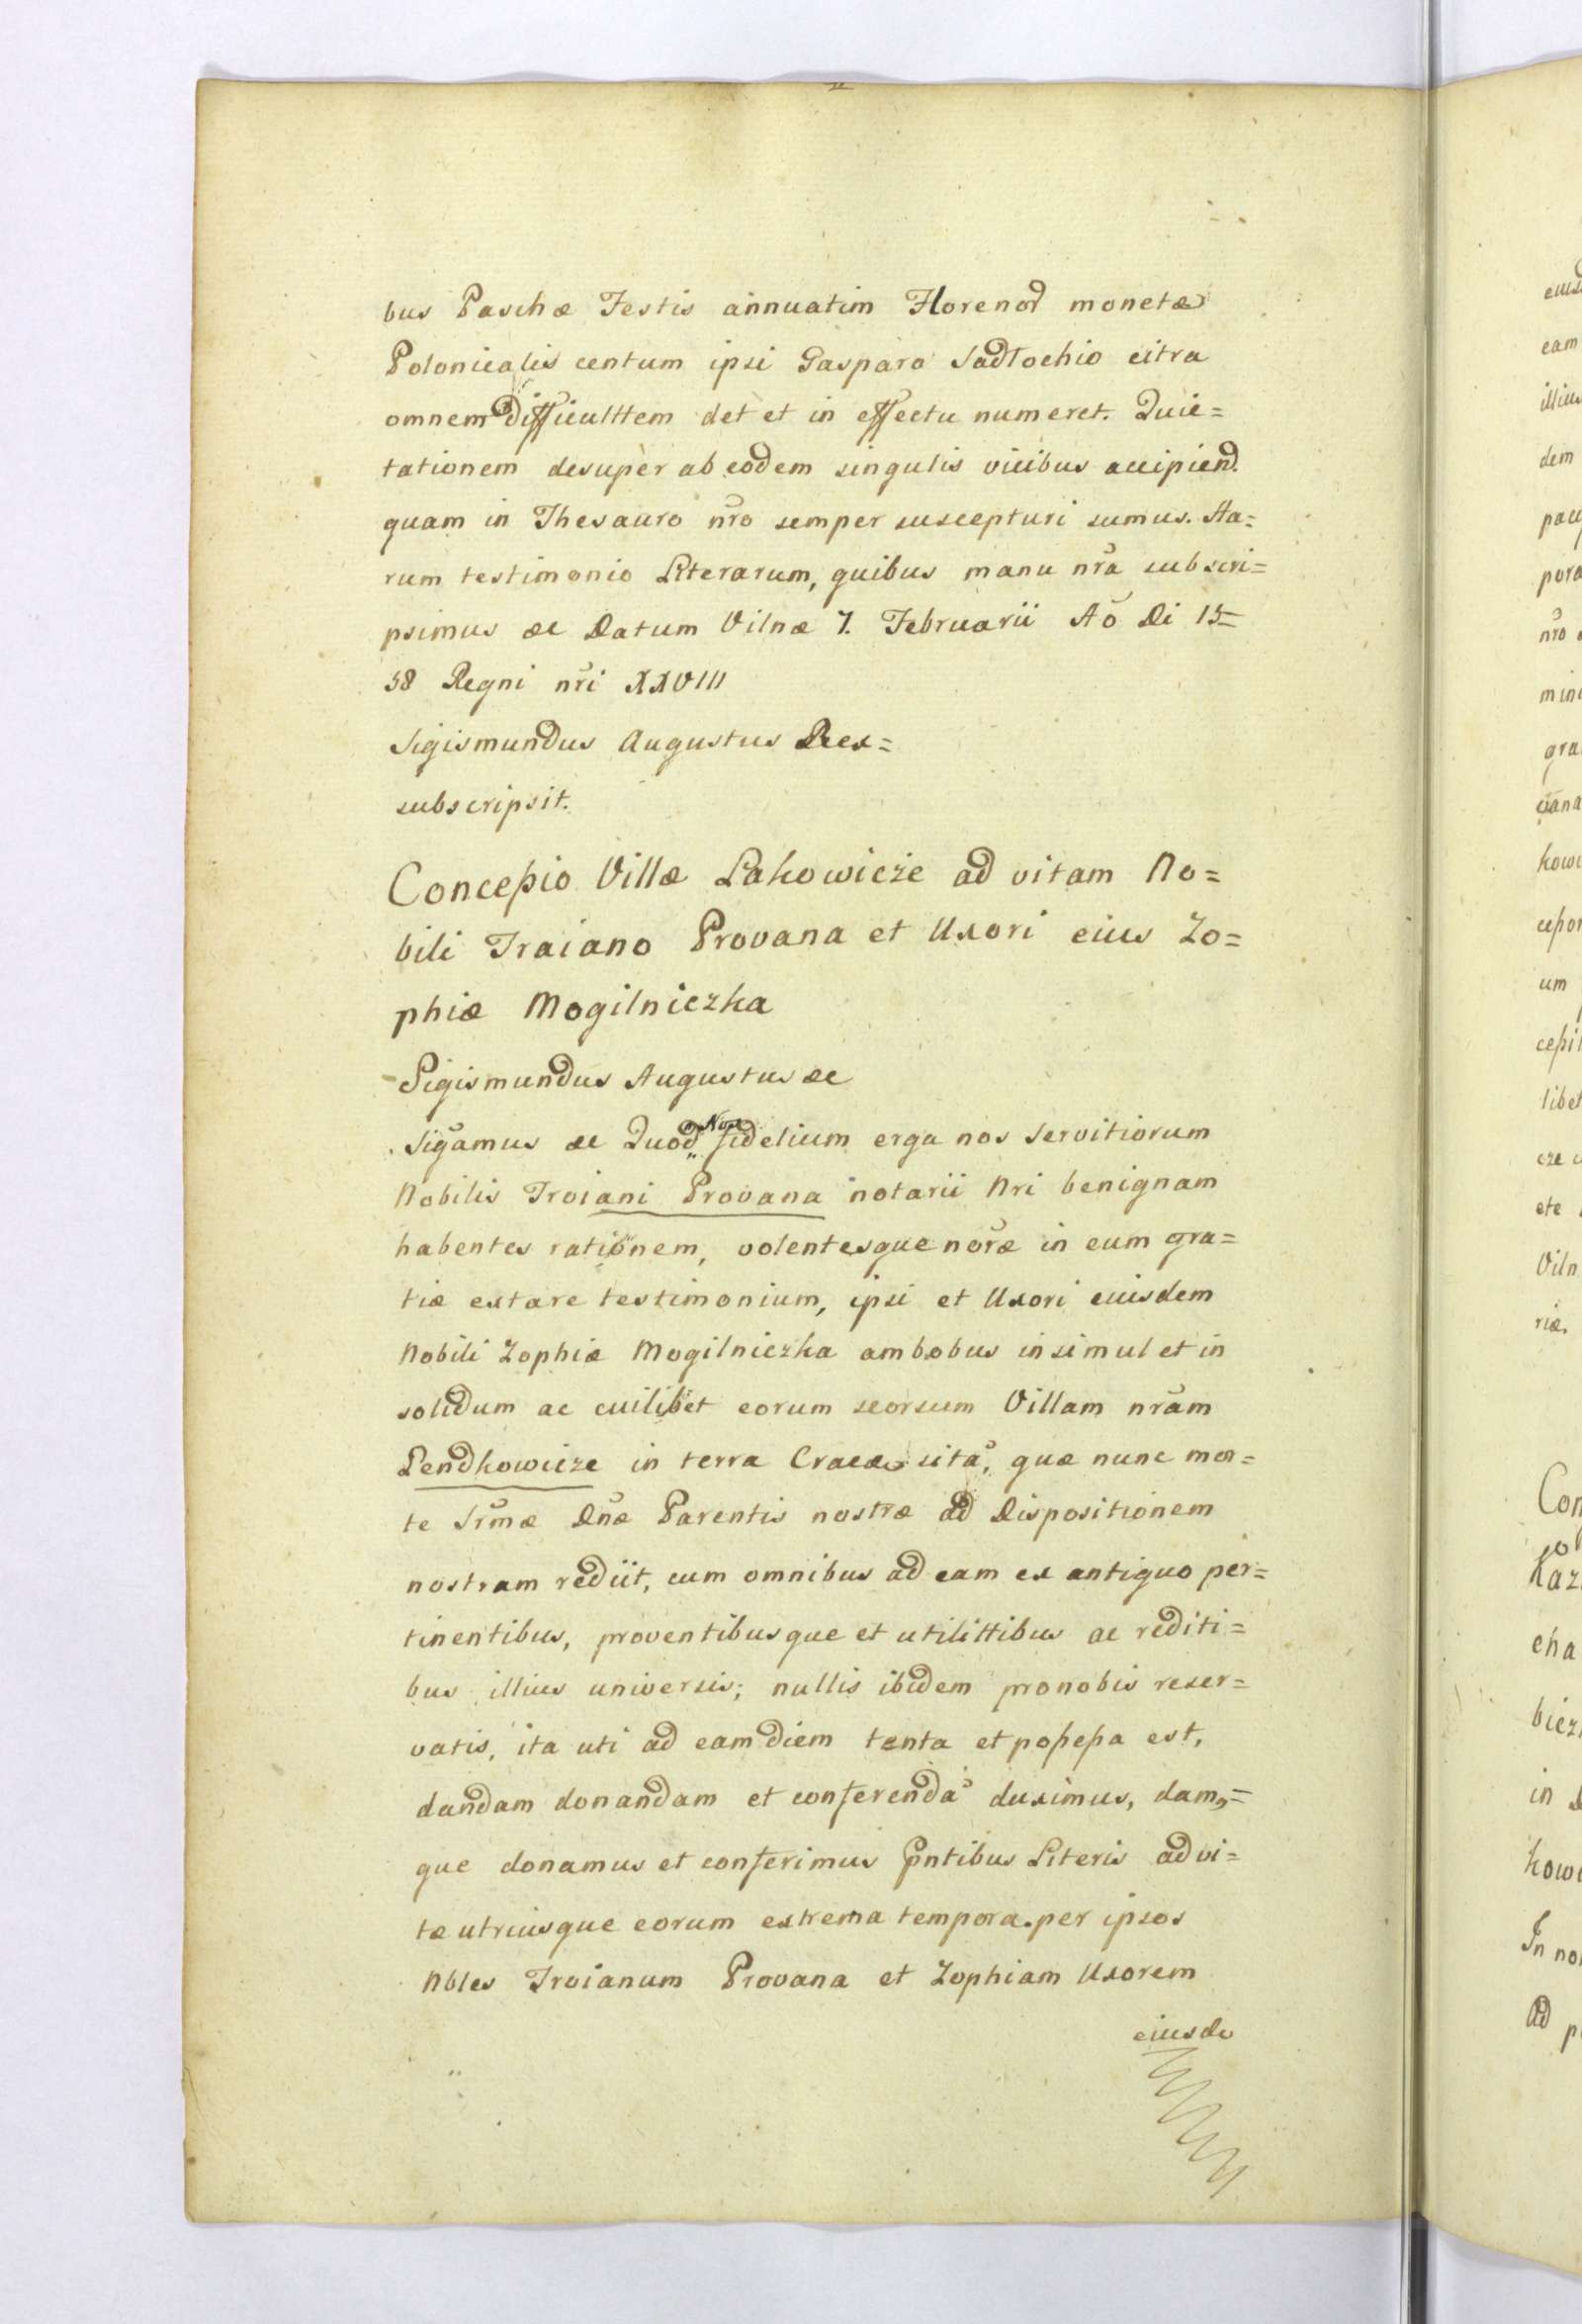 bus Paschæ Festis annuatim Florenor monetæ
Polonicalis centum ipsi Gasparo Sadlochio citra
omnem difficulttem det et in effectu numeret. Quie=
tationem desuper ab eodem singulis vicibus accipiend.
quam in Thesauro nro semper suscepturi sumus. Ha=
rum testimonio Literarum, quibus manu nra subscri=
psimus &c Datum Vilnæ 7. Februarii Ao Di 15=
58 Regni nri XXVIII
Sigismundus Augustus Rex=
subscripsit.
Concessio Villæ Lakowicze ad vitam No=
bili Traiano Provana et Uxori eius Zo=
phiæ Mogilniczka
Sigismundus Augustus &c
Sigamus &c Quod fidelium erga nos Servitiorum
Nobilis Troiani Provana notarii Nri benignam
habentes rationem, volentesque noræ in eum gra=
tiæ extare testimonium, ipsi et Uxori eiusdem
Nobili Zophiæ Mogilniczka ambobus insimul et in
solidum ac cuilibet eorum seorsum Villam nram
Lendkowicze in terra Cracov sita, quæ nunc mor=
te Srmæ Dnæ Parentis nostræ ad Dispositionem
nostram rediit, cum omnibus ad eam ex antiquo per=
tinentibus, proventibusque et utilittibus ac rediti=
bus illius universis; nullis ibidem pronobis reser=
vatis, ita uti ad eam diem tenta et possessa est,
dandam donandam et conferenda duximus, dam,=
que donamus et conferimus pntibus Literis ad vi=
tæ utriusque eorum extrema tempora. per ipsos
Nbles Troianum Provana et Zophiam Uxorem
eiusde
eam
dem
nro
Viln
riæ
Con
cha
in
kowi
In no
ad p